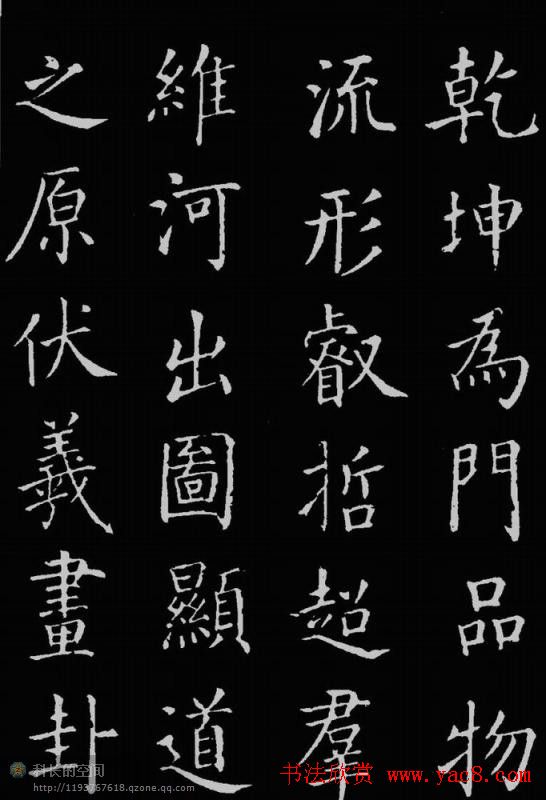 乾坤為門品物
流形叡哲超羣
維河出圖顯道
之原伏羲畫卦
科长的空间
http://1193767618.qzone.qq.com
书法欣赏 www.yac8.com